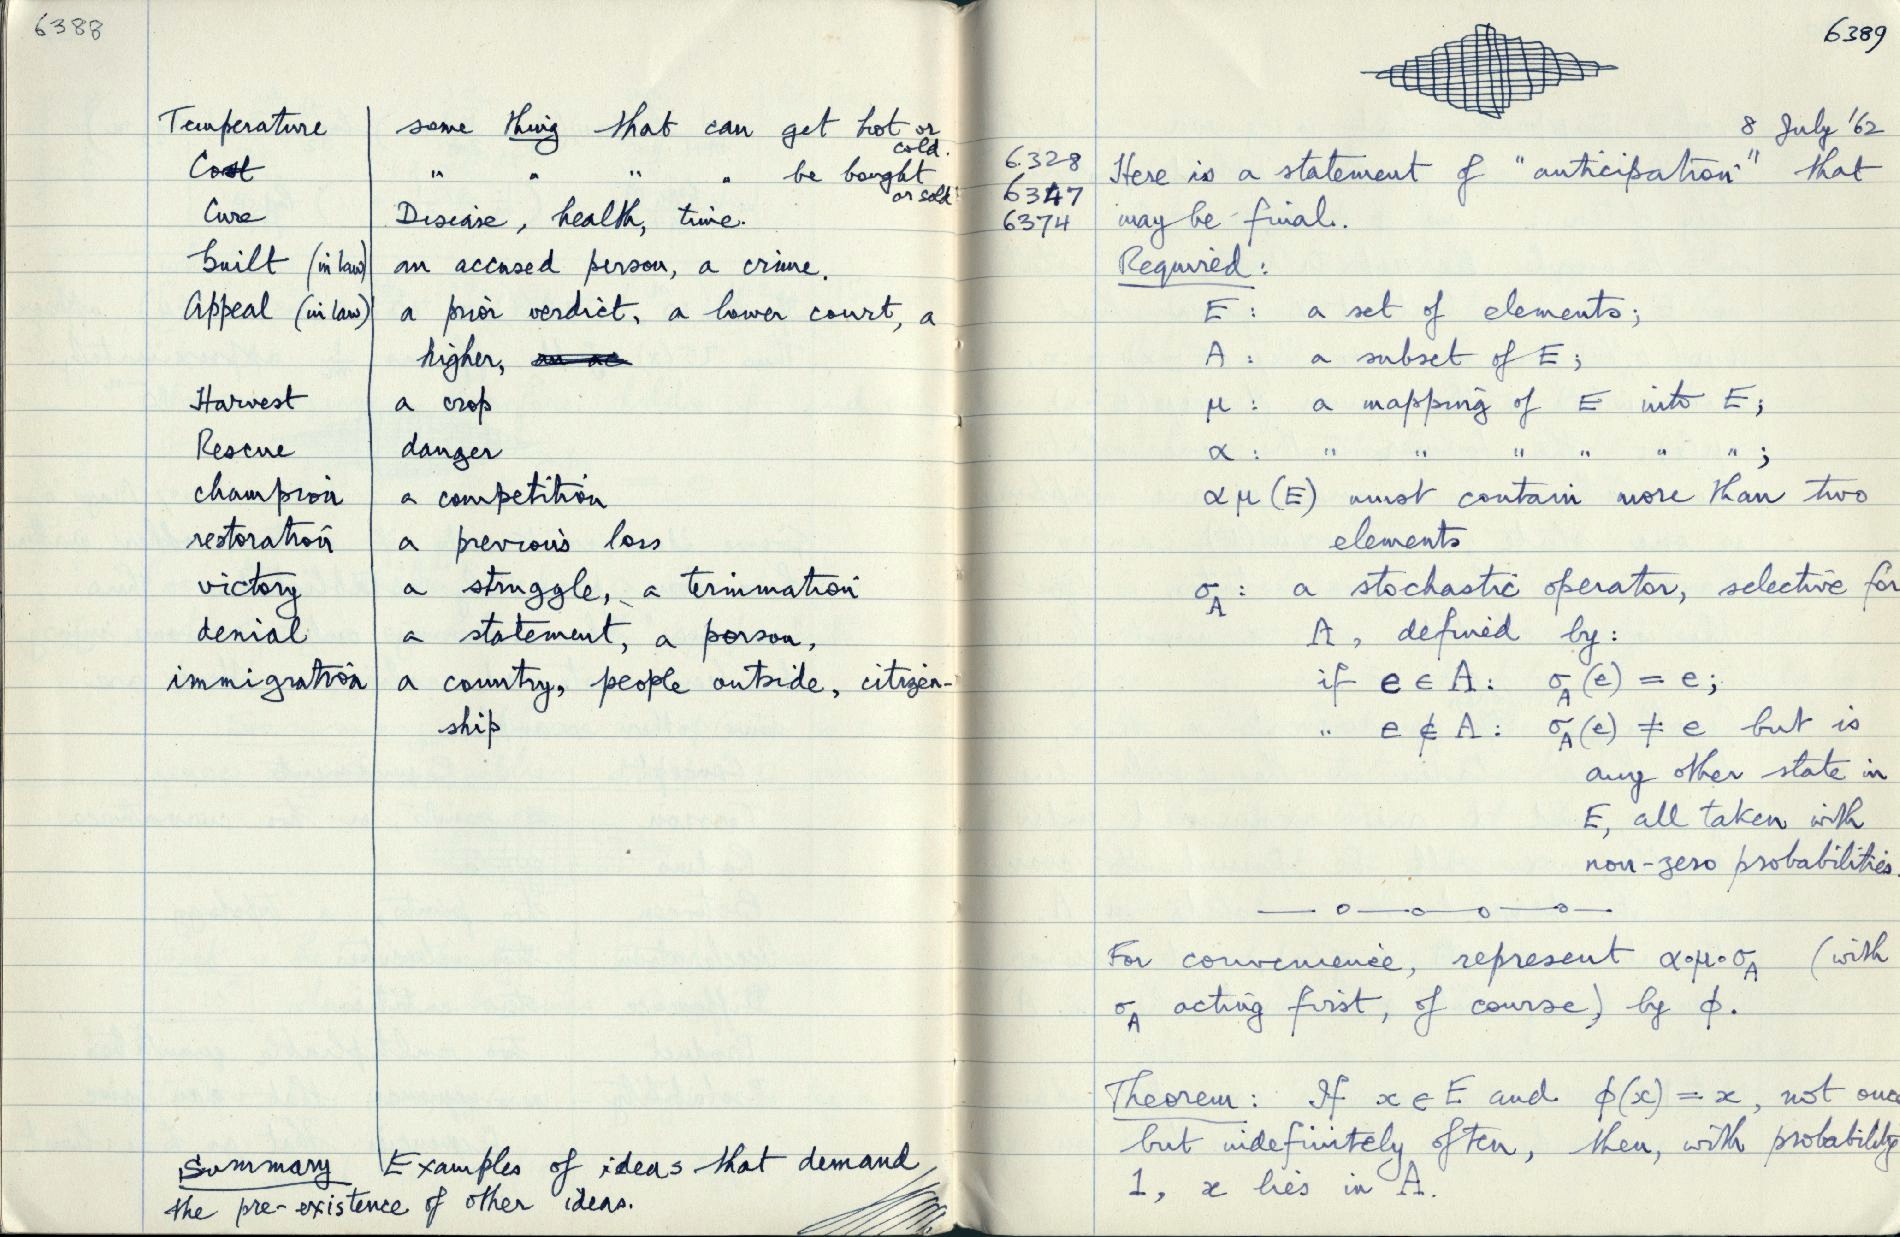 6388
Temperature some thing that can get hot or
cold.
Cost " " " " be bought
or sold
Cure Disease, health, time.
Guilt (in law) an accused person, a crime.
Appeal (in law) a prior verdict, a lower court, a
higher, an ac
Harvest a crop
Rescue danger
champion a competition
restoration a previous loss
victory a struggle, a termination
denial a statement, a person,
immigration a country, people outside, citizen-
ship
Summary Examples of ideas that demand
the pre-existence of other ideas.
6389
8 July '62
6328 Here is a statement of "anticipation" that
6347
6374 may be final.
Required:
E: a set of elements;
A: a subset of E;
μ: a mapping of E into E;
α: " " " " " ";
αμ(E) must contain more than two
elements
σ_A: a stochastic operator, selective for
A, defined by:
if e ∈ A: σ_A(e) = e;
" e ∉ A: σ_A(e) ≠ e but is
any other state in
E, all taken with
non-zero probabilities.
For convenience, represent α·μ·σ_A (with
σ_A acting first, of course) by ϕ.
Theorem: If x ∈ E and ϕ(x) = x, not once
but indefinitely often, then, with probability
1, x lies in A.